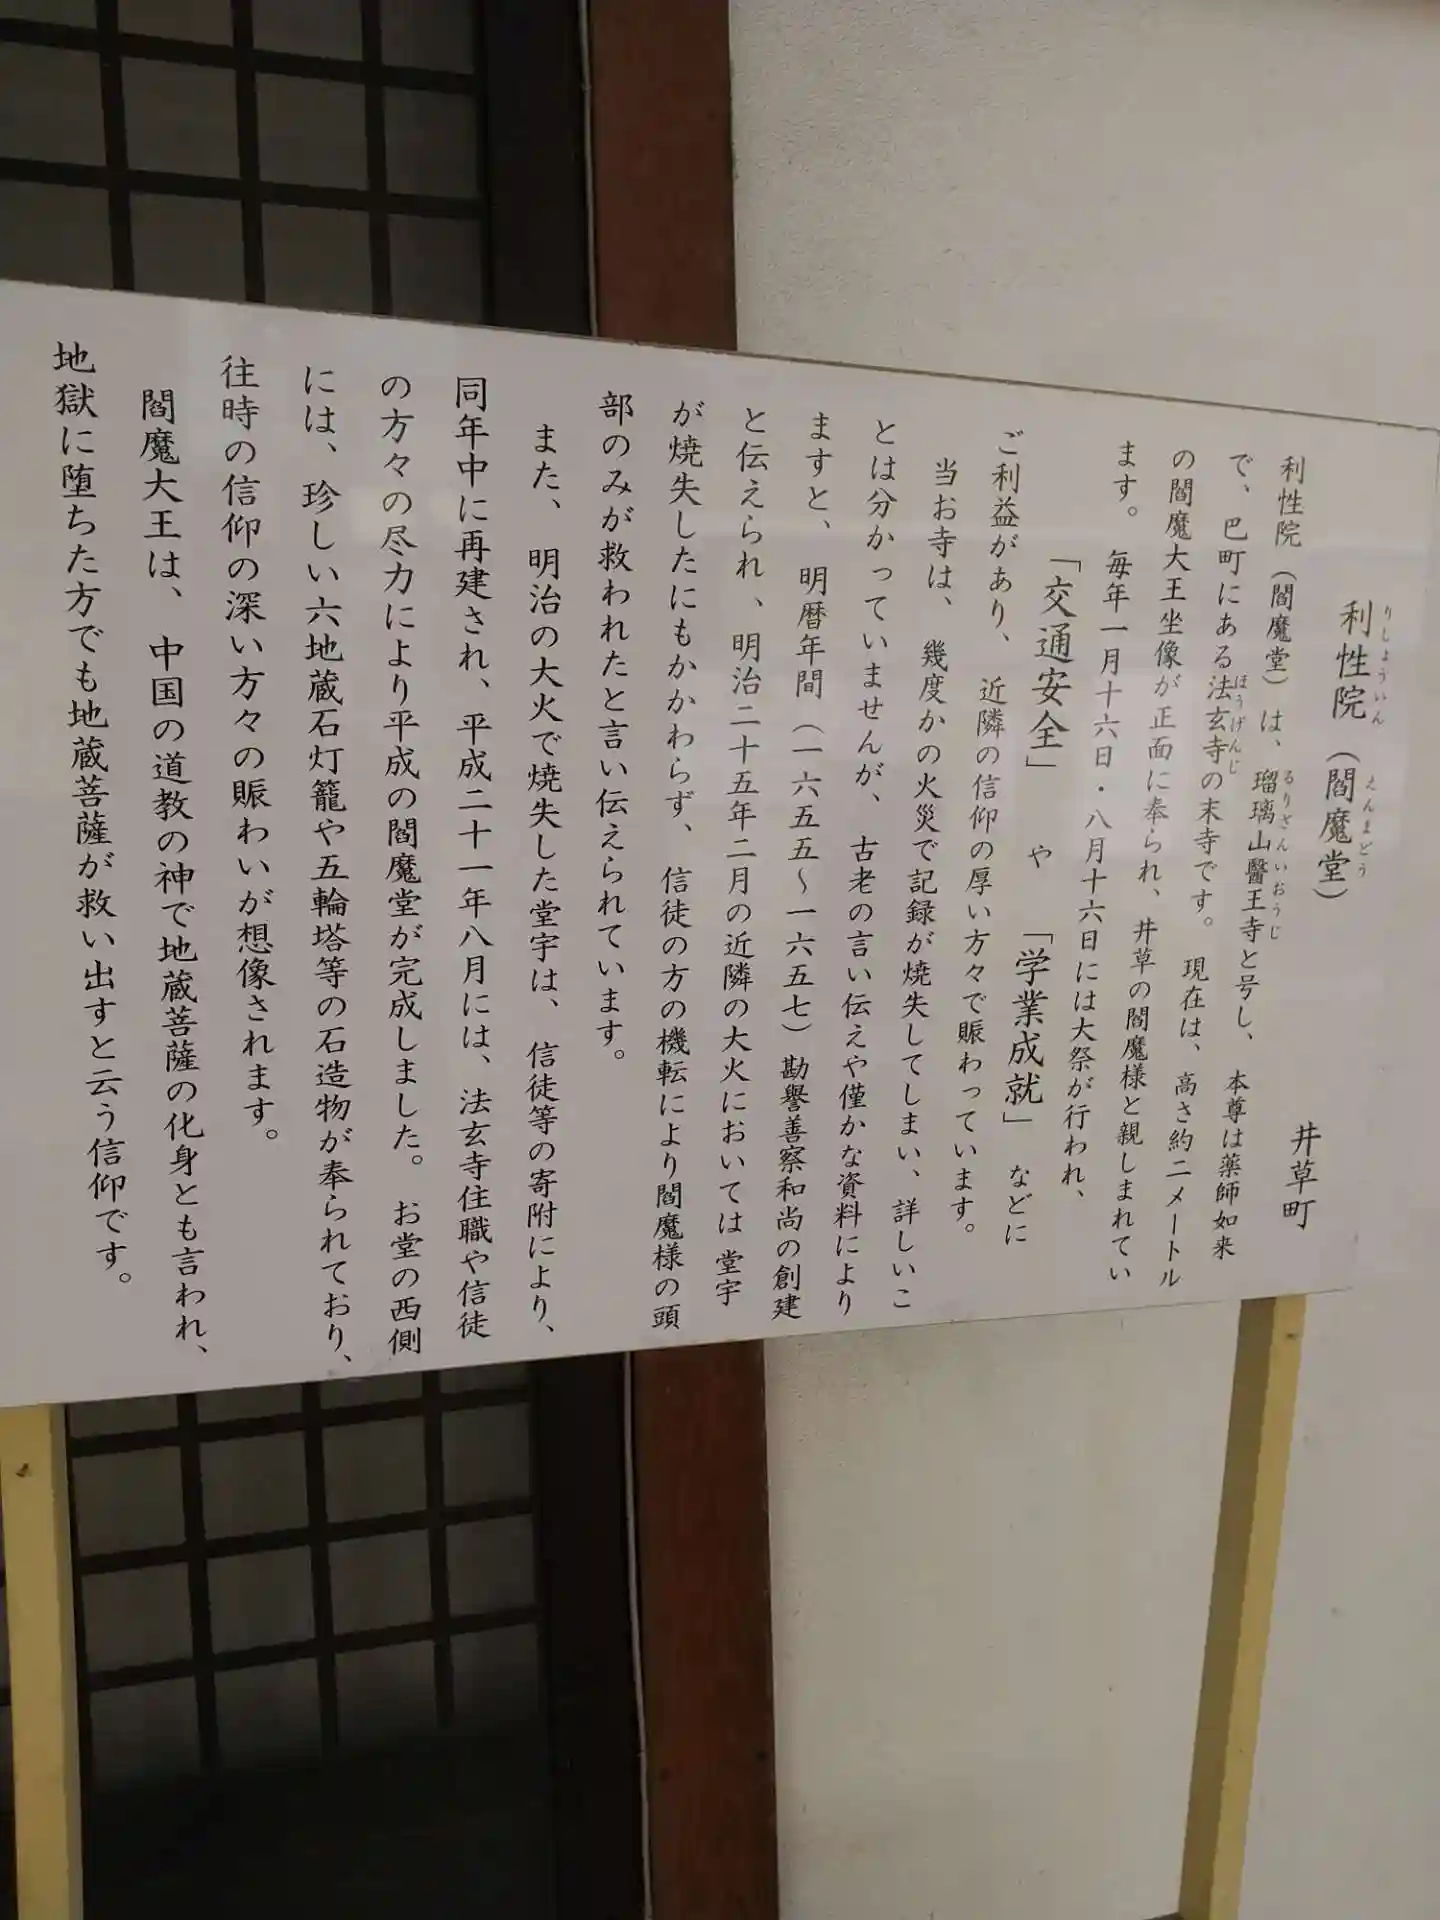 利性院（閻魔堂） 井草町
りしょういん えんまどう
利性院（閻魔堂）は、瑠璃山醫王寺と号し、本尊は薬師如来
るりざんいおうじ
で、巴町にある法玄寺の末寺です。現在は、高さ約二メートル
ほうげんじ
の閻魔大王坐像が正面に奉られ、井草の閻魔様と親しまれてい
ます。毎年一月十六日・八月十六日には大祭が行われ、
「交通安全」や「学業成就」などに
ご利益があり、近隣の信仰の厚い方々で賑わっています。
当お寺は、幾度かの火災で記録が焼失してしまい、詳しいこ
とは分かっていませんが、古老の言い伝えや僅かな資料により
ますと、明暦年間（一六五五～一六五七）勘譽善察和尚の創建
と伝えられ、明治二十五年二月の近隣の大火においては堂宇
が焼失したにもかかわらず、信徒の方の機転により閻魔様の頭
部のみが救われたと言い伝えられています。
また、明治の大火で焼失した堂宇は、信徒等の寄附により、
同年中に再建され、平成二十一年八月には、法玄寺住職や信徒
の方々の尽力により平成の閻魔堂が完成しました。お堂の西側
には、珍しい六地蔵石灯籠や五輪塔等の石造物が奉られており、
往時の信仰の深い方々の賑わいが想像されます。
閻魔大王は、中国の道教の神で地蔵菩薩の化身とも言われ、
地獄に堕ちた方でも地蔵菩薩が救い出すと云う信仰です。